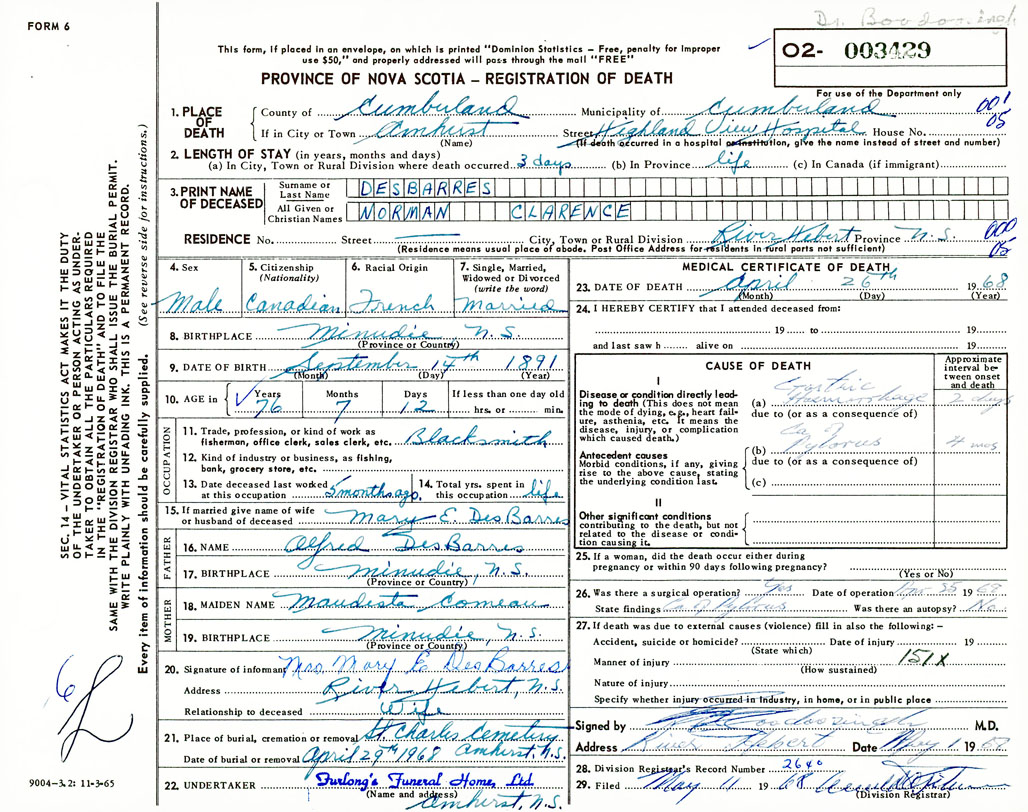 Dr. Boodoosingh
FORM 6
This form, if placed in an envelope, on which is printed "Dominion Statistics – Free, penalty for improper
use $50," and properly addressed will pass through the mail "FREE"
02- 003429
PROVINCE OF NOVA SCOTIA – REGISTRATION OF DEATH
For use of the Department only
001
05
1. PLACE OF DEATH County of Cumberland Municipality of Cumberland
If in City or Town Amhurst Street Highland View Hospital House No.
(Name) (If death occurred in a hospital or institution, give the name instead of street and number)
2. LENGTH OF STAY (in years, months and days)
(a) In City, Town or Rural Division where death occurred 3 days (b) In Province life (c) In Canada (if immigrant)
3. PRINT NAME OF DECEASED Surname or Last Name DESBARRES
All Given or Christian Names NORMAN CLARENCE
RESIDENCE No. Street City, Town or Rural Division River Hebert Province N.S.
000
05
(Residence means usual place of abode. Post Office Address for residents in rural parts not sufficient)
4. Sex
Male
5. Citizenship (Nationality)
Canadian
6. Racial Origin
French
7. Single, Married, Widowed or Divorced (write the word)
Married
8. BIRTHPLACE Minudie N.S.
(Province or Country)
9. DATE OF BIRTH September 14th 1891
(Month) (Day) (Year)
10. AGE in Years Months Days If less than one day old
76 7 12 hrs. or min.
OCCUPATION
11. Trade, profession, or kind of work as
fisherman, office clerk, sales clerk, etc. Blacksmith
12. Kind of industry or business, as fishing,
bank, grocery store, etc.
13. Date deceased last worked at this occupation 5 months ago.
14. Total yrs. spent in this occupation life
15. If married give name of wife
or husband of deceased Mary E. DesBarres
FATHER
16. NAME Alfred DesBarres
17. BIRTHPLACE Minudie, N.S.
(Province or Country)
MOTHER
18. MAIDEN NAME Comeau
19. BIRTHPLACE Minudie, N.S.
(Province or Country)
20. Signature of informant Mrs Mary E DesBarres
Address River Hebert, N.S.
Relationship to deceased Wife
21. Place of burial, cremation or removal St Charles Cemetery
Date of burial or removal April 29th 1968 Amhurst, N.S.
22. UNDERTAKER Furlong's Funeral Home, Ltd.
(Name and address) Amhurst, N.S.
MEDICAL CERTIFICATE OF DEATH
23. DATE OF DEATH April 26th 1968
(Month) (Day) (Year)
24. I HEREBY CERTIFY that I attended deceased from:
19 to 19
and last saw h alive on 19
CAUSE OF DEATH
Approximate interval between onset and death
I
Disease or condition directly leading to death (This does not mean the mode of dying, e.g., heart failure, asthenia, etc. It means the disease, injury, or complication which caused death.)
(a) Gastric Haemorrhage 2 days
due to (or as a consequence of)
Antecedent causes
Morbid conditions, if any, giving rise to the above cause, stating the underlying condition last.
(b) Ca of Pylorus 4 mos
due to (or as a consequence of)
(c)
II
Other significant conditions
contributing to the death, but not related to the disease or condition causing it.
25. If a woman, did the death occur either during
pregnancy or within 90 days following pregnancy?
(Yes or No)
26. Was there a surgical operation? Yes Date of operation 1968
State findings Ca of Pylorus Was there an autopsy? No
27. If death was due to external causes (violence) fill in also the following: –
Accident, suicide or homicide? Date of injury 19
(State which)
Manner of injury 151X
(How sustained)
Nature of injury
Specify whether injury occurred in industry, in home, or in public place
Signed by Boodoosingh M.D.
Address River Hebert Date May 1 19
28. Division Registrar's Record Number 2640
29. Filed May 11 1968
(Division Registrar)
SEC. 14 – VITAL STATISTICS ACT MAKES IT THE DUTY
OF THE UNDERTAKER OR PERSON ACTING AS UNDER-
TAKER TO OBTAIN ALL THE PARTICULARS REQUIRED
IN THE "REGISTRATION OF DEATH" AND TO FILE THE
SAME WITH THE DIVISION REGISTRAR WHO SHALL ISSUE THE BURIAL PERMIT.
WRITE PLAINLY WITH UNFADING INK. THIS IS A PERMANENT RECORD.
Every item of information should be carefully supplied. (See reverse side for instructions.)
6
9004–3.2: 11-3-65